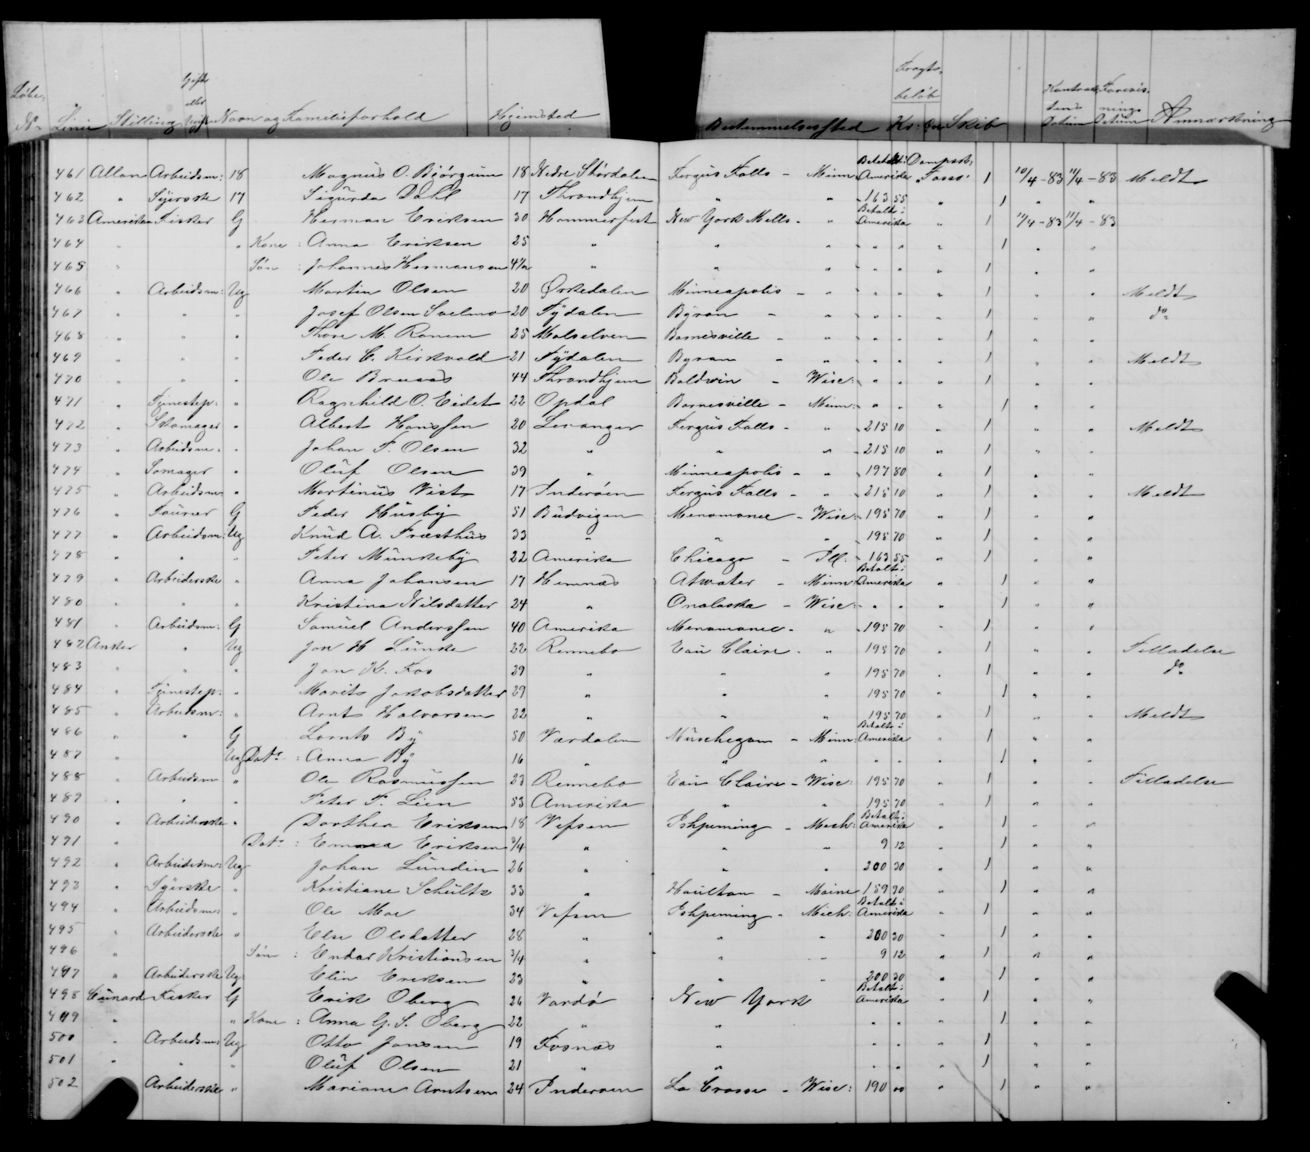 Løbe Gifte eller Fragt-beløb Kontrak-tens Forevis-nings
No Linie Stilling Ugift Navn og Familieforhold Hjemsted Bestemmelsessted Kr: Øre Skib Datum Datum Anmærkning
461 Allan Arbeidsm: 18 Magnus O. Bjørgum 18 Nedre Størdalen Fergus Falls - Minn: Betalt i Amerika Dampsk: Tasso 1 10/4-83 11/4-83 Meldt
462 " Syerske 17 Sigurda Dahl 17 Throndhjem " " 163 55 " 1 " "
463 Amerika Fisker G Herman Eriksen 30 Hammerfest New York Mills - " Betalt i Amerika " 1 11/4-83 11/4-83
464 " " Kone : Anna Eriksen 25 " " " " " " 1 " "
465 " Søn : Johannes Hermansen 4 1/2 " " " " " " 1 " "
466 " Arbeidsm: Ug Martin Olsen 20 Ørkedalen Minneapolis - " " " " 1 " " Meldt
467 " " " Josef Olsen 20 Tydalen Byron " " " " " 1 " " do
468 " " " Thore M. Ronem 25 Malselven Barnesville " " " " " 1 " "
469 " " " Peder E. Kirkvold 21 Tydalen Byron " " " " " 1 " " Meldt
470 " " " Ole Brusas 44 Throndhjem Baldwin - Wisc: " " " 1 " "
471 " Tjenestep: " Ragnhild O. Eidet 22 Opdal Barnesville - Minn: " " " 1 " "
472 " Skomager " Albert Hansen 20 Levanger Fergus Falls - " 215 10 " 1 " " Meldt
473 " Arbeidsm. " Johan P. Olsen 32 " " " 215 10 " 1 " "
474 " Oluf Olsen 39 " Minneapolis - " 197 80 " 1 " "
475 " Arbeidsm " Martinus Vist 17 Inderøen Fergus Falls - " 215 10 " 1 " " Meldt
476 " G Peder Husby 51 Budvigen Menomonee - Wisc: 195 70 " 1 " "
477 " Arbeidsm: Ug Knud A. Præsthus 33 " " " 195 70 " 1 " "
478 " " " Peter Munkeby 22 Amerika Chicago - Ill: 163 55 " 1 " "
479 " Arbeiderske " Anna Johansen 17 Hemnæs Atwater - Minn: Betalt i Amerika " 1 " "
480 " " " Kristina Nilsdatter 24 " Onalaska - Wisc: " " " 1 " "
481 " Arbeidsm: G Samuel Andersen 40 Amerika Menomonee - " 195 70 " 1 " "
482 Anker " Ug Jon H Lunke 22 Rennebo Eau Claire - " 195 70 " 1 " " Filladelse
483 " " " Jon K. Fos 29 " " " 195 70 " 1 " " do
484 " Tjenestep: " Marit Jakobsdatter 29 " " " 195 70 " 1 " "
485 " Arbeidsm: " Arnt Halvorsen 22 " " " 195 70 " 1 " " Meldt
486 " " G Lornts By 50 Værdalen Muschegon - Minn: Betalt i Amerika " 1 " "
487 " Ug Datr : Anna By 16 " " " " " " 1 " "
488 " Arbeidsm " Ole Rasmussen 23 Rennebo Eau Claire - Wisc: 195 70 " 1 " " Filladelse
489 " " " Peter P. Lien 53 Amerika " " 195 70 " 1 " "
490 " Arbeiderske " Dorthea Eriksen 18 Vefsen Ishpeming - Mich: Betalt i Amerika " 1 " "
491 " Datr : Emma Eriksen 3/4 " " " 9 12 " 1 " "
492 " Arbeidsm: Ug Johan Lundin 26 " " " 200 30 " 1 " "
493 " Syerske " Kristiane Schultz 33 " Houlton - Maine 159 30 " 1 " "
494 " Arbeidsm: " Ole Moe 34 Vefsen Ishpeming - Mich: Betalt i Amerika " 1 " "
495 " Arbeiderske " Else Olsdatter 28 " " " 200 30 " 1 " "
496 " Søn : Endar Kristiansen 3/4 " " " 9 12 " 1 " "
497 " Arbeiderske Ug Elin Eriksen 23 " " " 200 30 " 1 " "
498 Cunard Fisker G Erik Oberg 26 Vardø New York Betalt i Amerika " 1 " "
499 " " Kone : Anna G. S. Oberg 22 " " " " " 1 " "
500 " Arbeidsm: Ug Otto Jansen 19 Fosnæs " " " " 1 " "
501 " " " Oluf Olsen 21 " " " " " 1 " "
502 " Arbeiderske " Mariane Arntsen 24 Inderøen La Crosse - Wisc: 190 00 " 1 " "